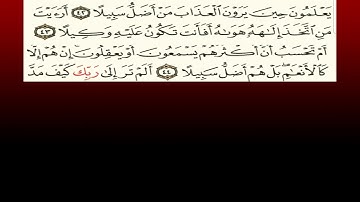 يَعْلَمُونَ حِينَ يَرَوْنَ ٱلْعَذَابَ مَنْ أَضَلُّ سَبِيلًا ٤٢ أَرَءَيْتَ
مَنِ ٱتَّخَذَ إِلَٰهَهُۥ هَوَىٰهُ أَفَأَنتَ تَكُونُ عَلَيْهِ وَكِيلًا ٤٣
أَمْ تَحْسَبُ أَنَّ أَكْثَرَهُمْ يَسْمَعُونَ أَوْ يَعْقِلُونَ ۚ إِنْ هُمْ إِلَّا
كَٱلْأَنْعَٰمِ ۖ بَلْ هُمْ أَضَلُّ سَبِيلًا ٤٤ أَلَمْ تَرَ إِلَىٰ رَبِّكَ كَيْفَ مَدَّ